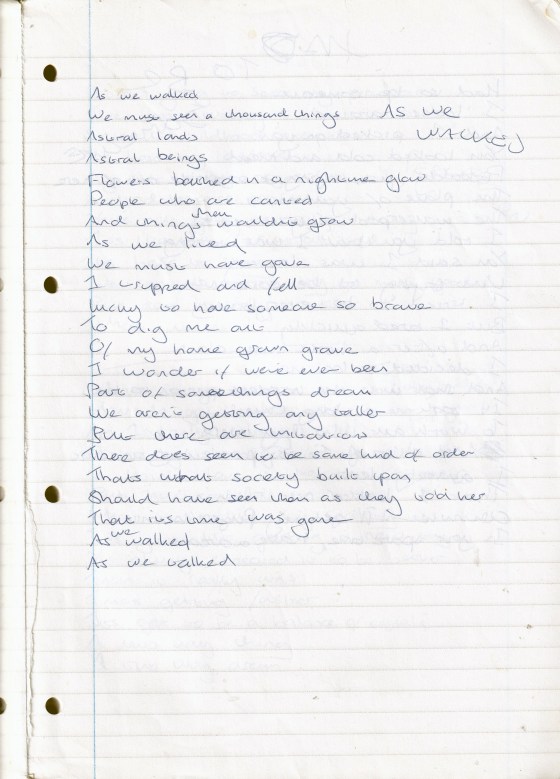 As we walked
We must seen a thousand things
AS WE WALKED
Astral lands
Astral beings
Flowers bathed in a nightime glow
People who are carved
And things then wouldn't grow
As we lived
We must have gave
I tripped and fell
lucky to have someone so brave
To dig me out
Of my home grown grave
I wonder if we've ever been
Part of somethings dream
We aren't getting any taller
But there are
There does seem to be some kind of order
Thats what society built upon
Should have seen when as they told her
That its time was gone
As we walked
As we walked